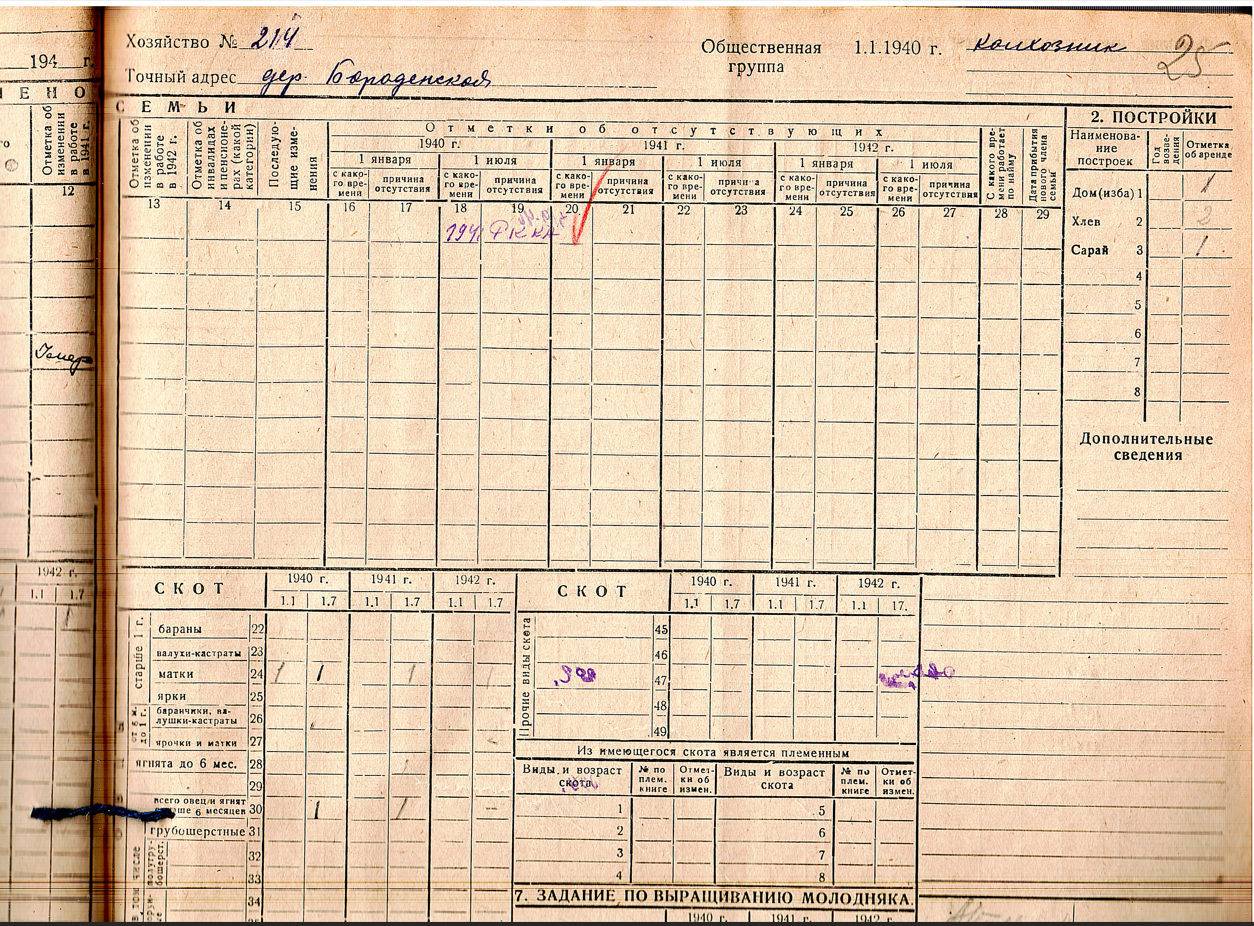 194 г.
Хозяйство № 214
Общественная группа 1.1.1940 г. колхозник
25
Точный адрес дер.
ЛЕНО
СЕМЬИ
Отметка об изменении в работе в 1941 г.
12
Отметка об изменении в работе в 1942 г.
Отметка об инвалидах и пенсионерах (какой категории)
Последующие изменения
Отметки об отсутствующих
1940 г. 1941 г. 1942 г.
1 января 1 июля 1 января 1 июля 1 января 1 июля
с какого времени причина отсутствия с какого времени причина отсутствия с какого времени причина отсутствия с какого времени причина отсутствия с какого времени причина отсутствия с какого времени причина отсутствия
С какого времени работает по найму
Дата прибытия нового члена семьи
13 14 15 16 17 18 19 20 21 22 23 24 25 26 27 28 29
РККА
2. ПОСТРОЙКИ
Наименование построек
Год возведения
Отметка об аренде
Дом (изба) 1 1
Хлев 2 2
Сарай 3 1
4
5
6
7
8
Дополнительные сведения
1942 г.
1.1 1.7
СКОТ 1940 г. 1941 г. 1942 г.
1.1 1.7 1.1 1.7 1.1 1.7
старше 1 г.
бараны 22
валухи-кастраты 23
матки 24 1 1 1 1
ярки 25
от 6 м. до 1 г.
баранчики, валушки-кастраты 26
ярочки и матки 27
ягнята до 6 мес. 28 1
29
всего овец и ягнят старше 6 месяцев 30 1 1 –
грубошерстные 31
32
33
34
в том числе
СКОТ 1940 г. 1941 г. 1942 г.
1.1 1.7 1.1 1.7 1.1 17.
Прочие виды скота
45
46
47
48
49
Из имеющегося скота является племенным
Виды и возраст скота № по плем. книге Отметки об измен. Виды и возраст скота № по плем. книге Отметки об измен.
1 5
2 6
3 7
4 8
7. ЗАДАНИЕ ПО ВЫРАЩИВАНИЮ МОЛОДНЯКА.
1940 г. 1941 г. 1942 г.